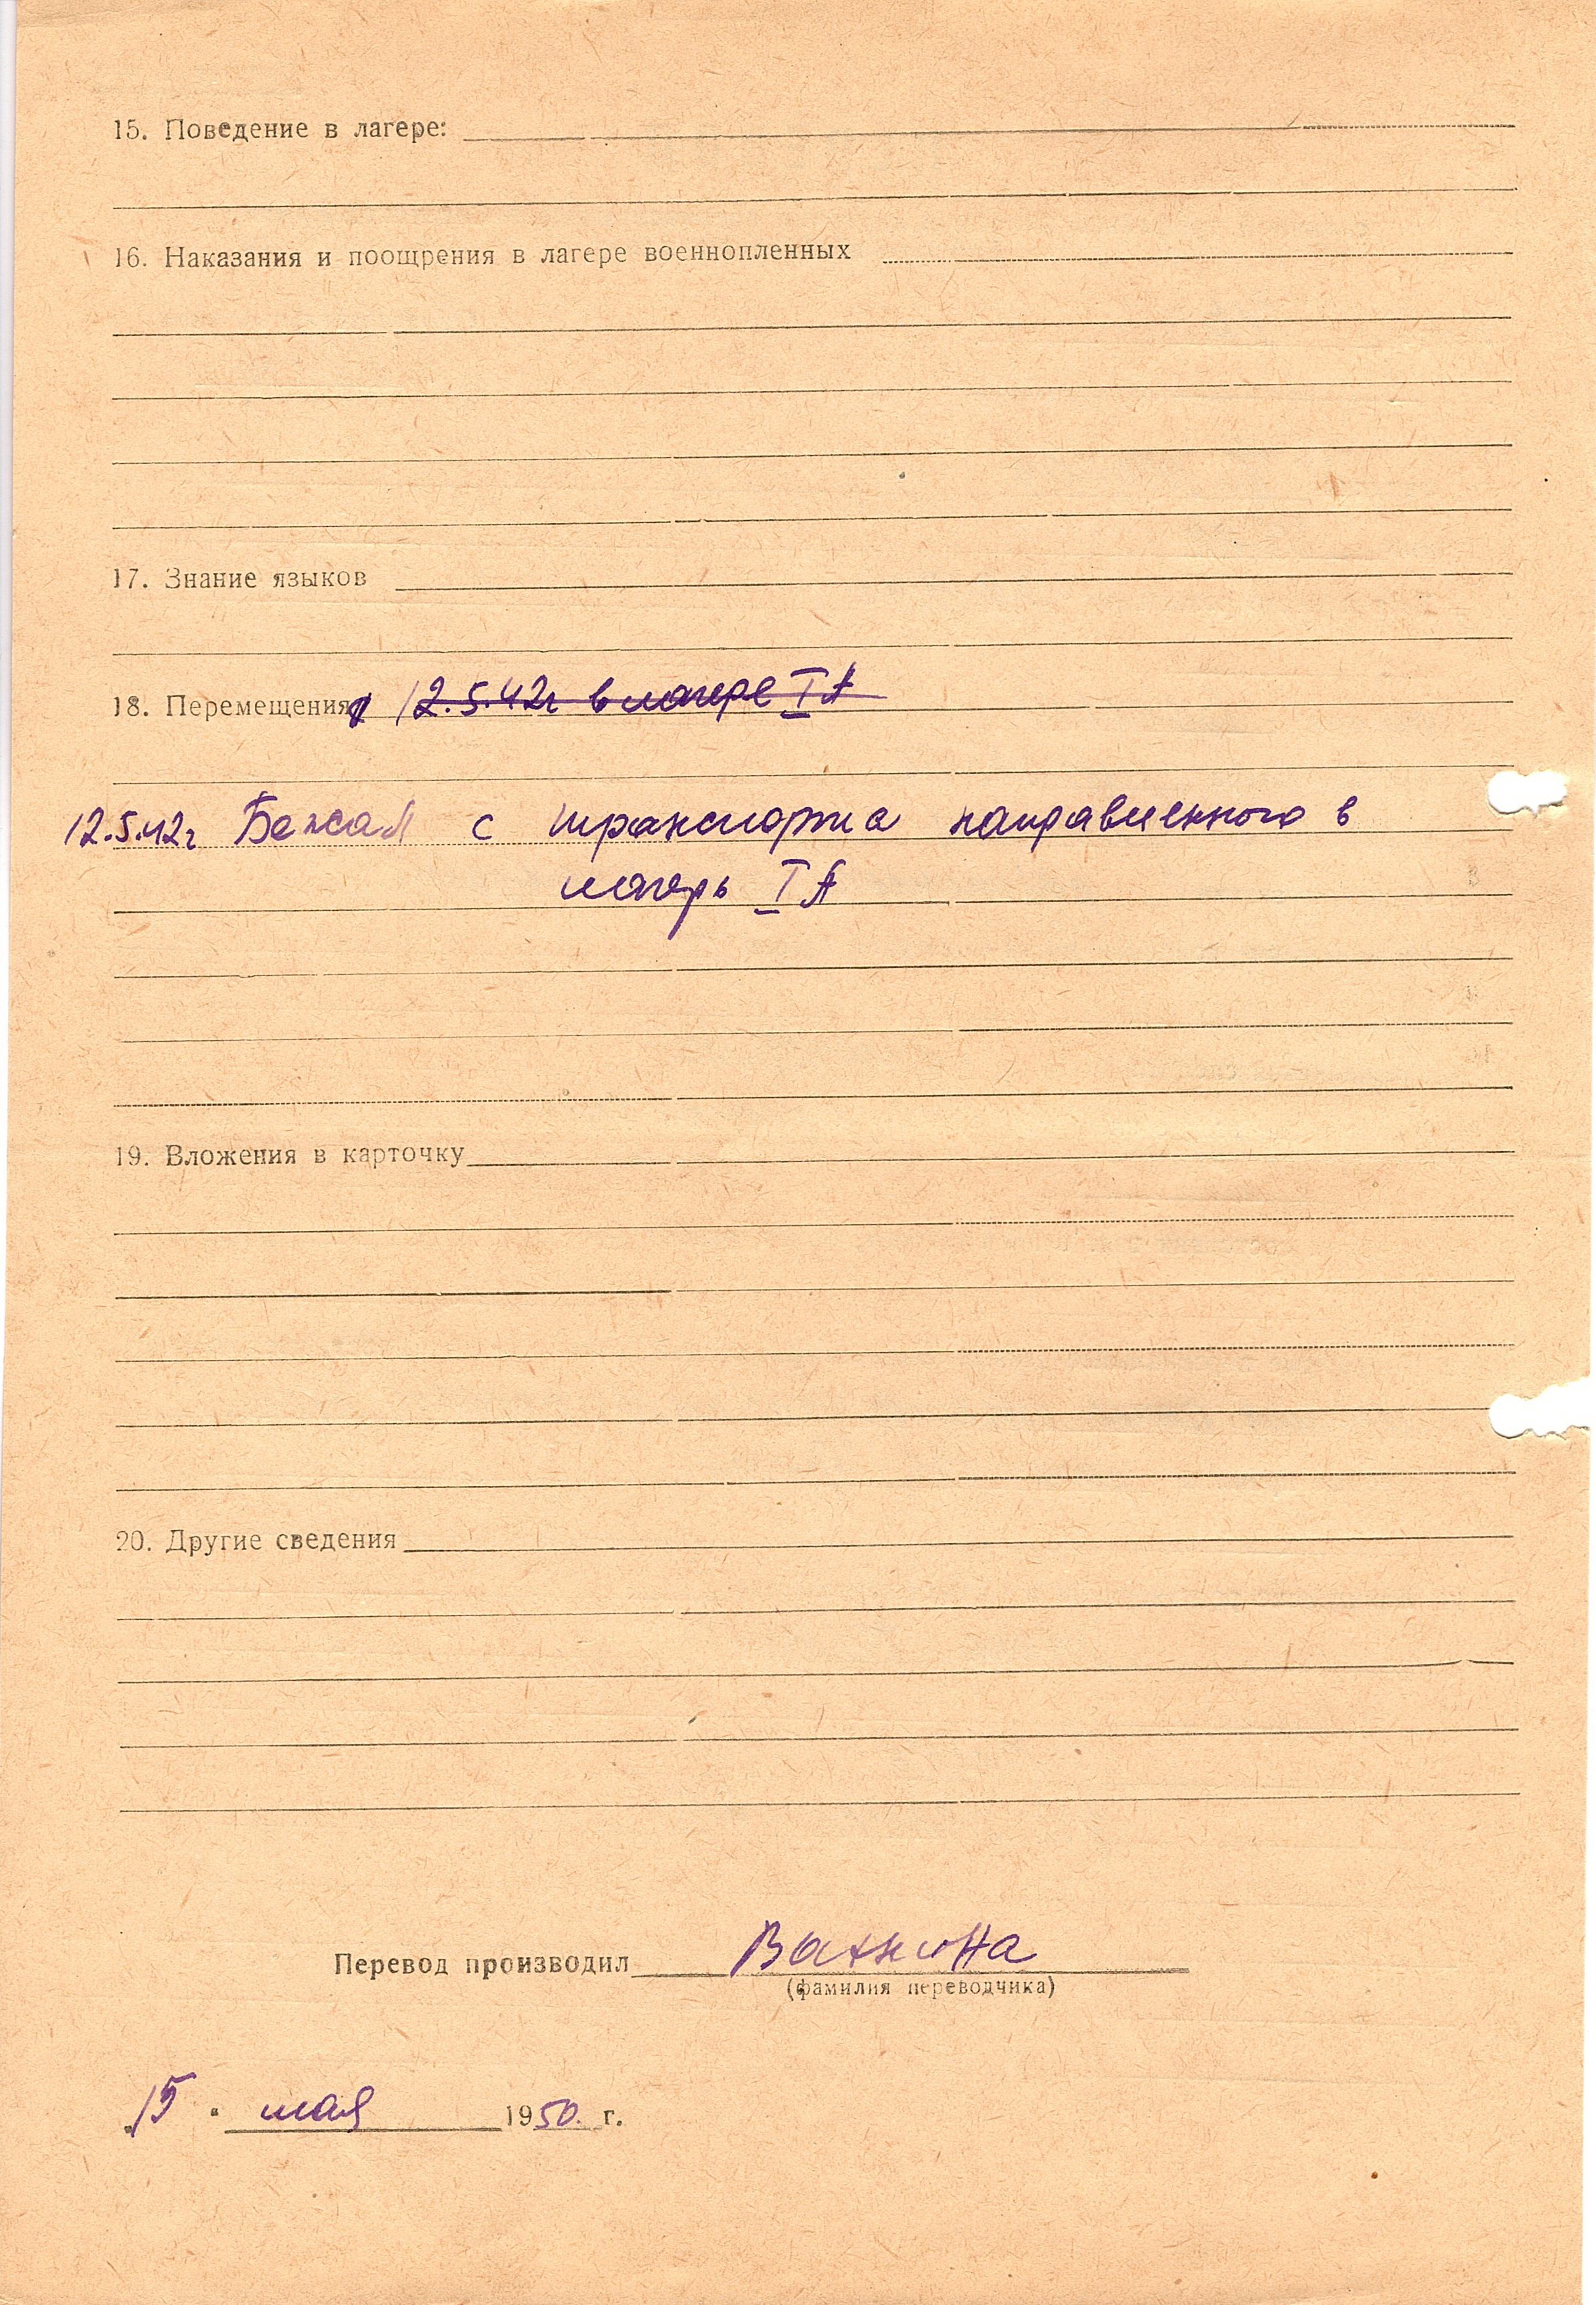 15. Поведение в лагере:
16. Наказания и поощрения в лагере военнопленных
17. Знание языков
18. Перемещения 12.5.42г в лагере I А
12.5.42г Бежал с транспорта направленного в
лагерь I А
19. Вложения в карточку
20. Другие сведения
Перевод производил
(фамилия переводчика)
"15" мая 1950 г.